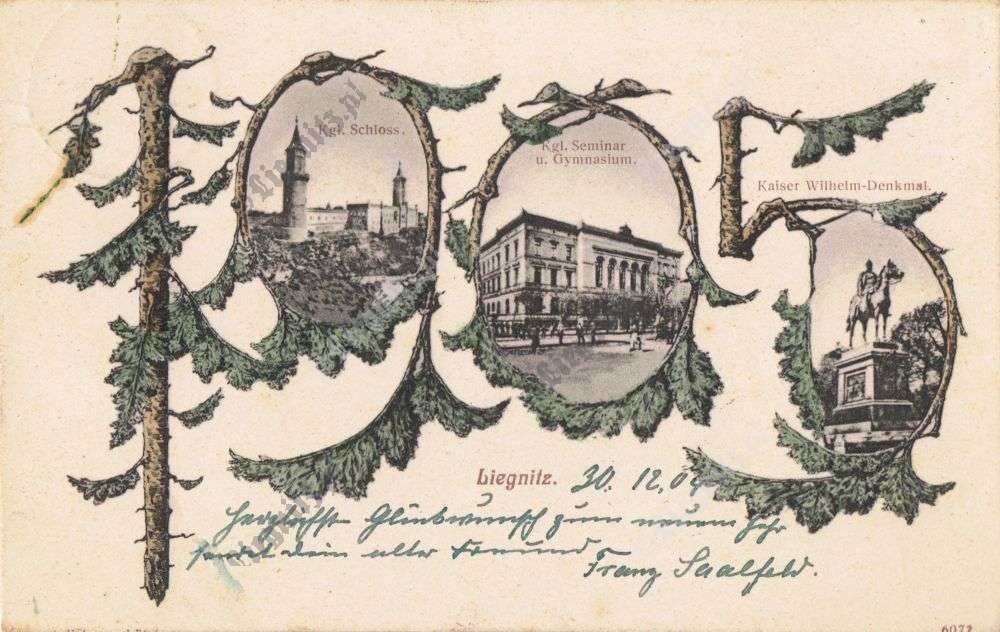 1905
Kgl. Schloss.
Kgl. Seminar
u. Gymnasium.
Kaiser Wilhelm-Denkmal.
Liegnitz. 30. 12. 04
herzlichsten Glückwunsch zum neuen Jahr
sendet dein alter Freund
Franz Saalfeld.
6077